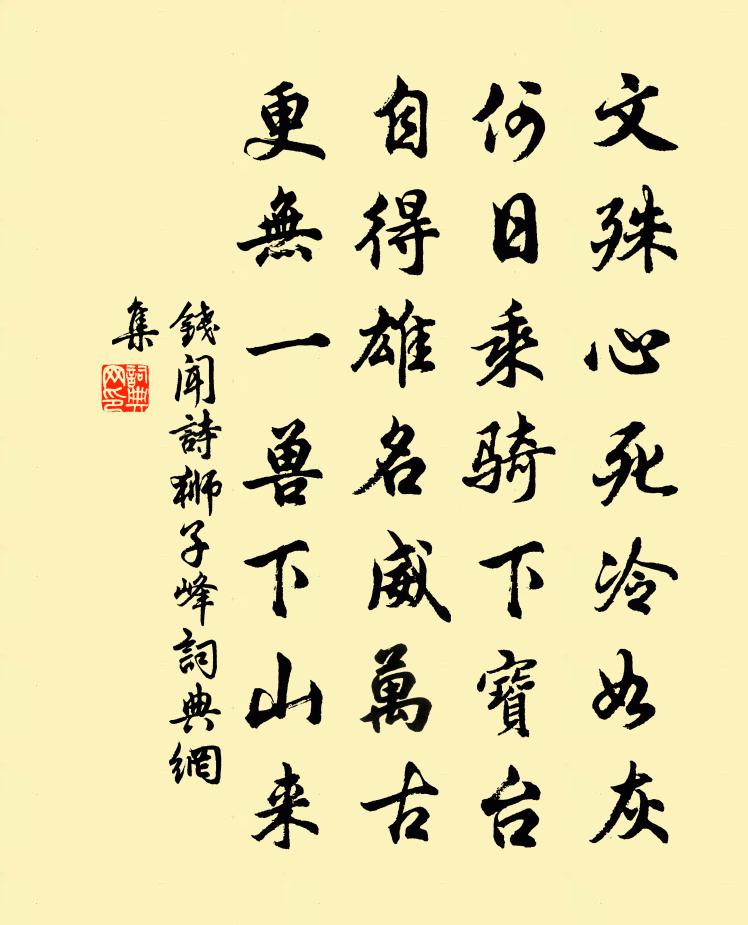 文殊心死冷如灰
何日乘骑下寶台
自得雄名威萬古
更無一兽下山来
錢聞詩狮子峰詞典網
集
詞典
网印